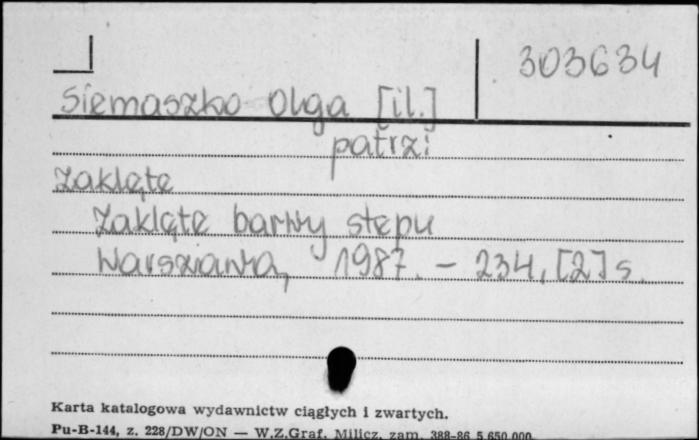 303634
Siemaszko Olga [il.]
patrz:
Zaklęte
Zaklęte barwy stepu
Warszawa, 1987. - 234, [2] s.
Karta katalogowa wydawnictw ciągłych i zwartych.
Pu-B-144, z. 228/DW/ON — W.Z.Graf. Milicz, zam. 388-86 5.650.000